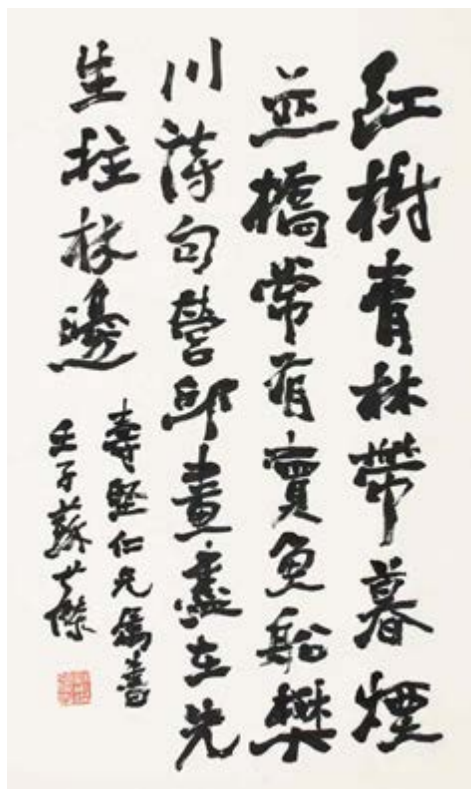 紅樹青林帶暮煙
並橋常有賣魚船樊
川詩句營邱畫盡在先
生拄杖邊
壽堅仁兄屬書
壬子蘇世傑